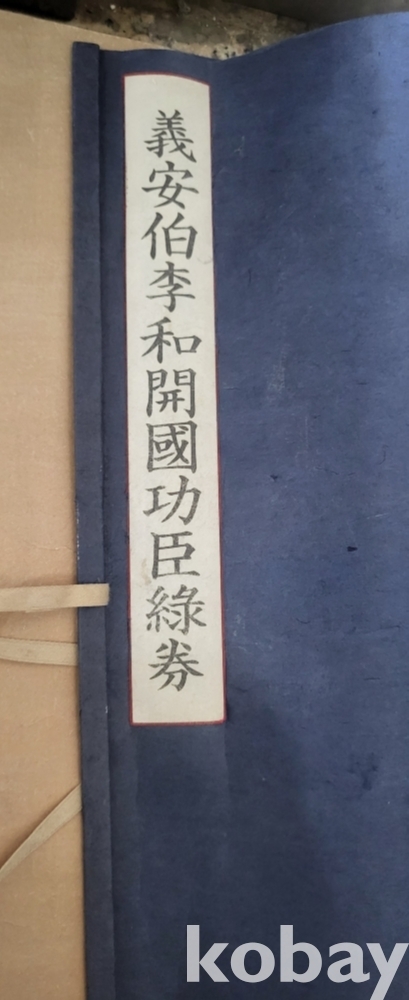 義安伯李和開國功臣綠券
kobay